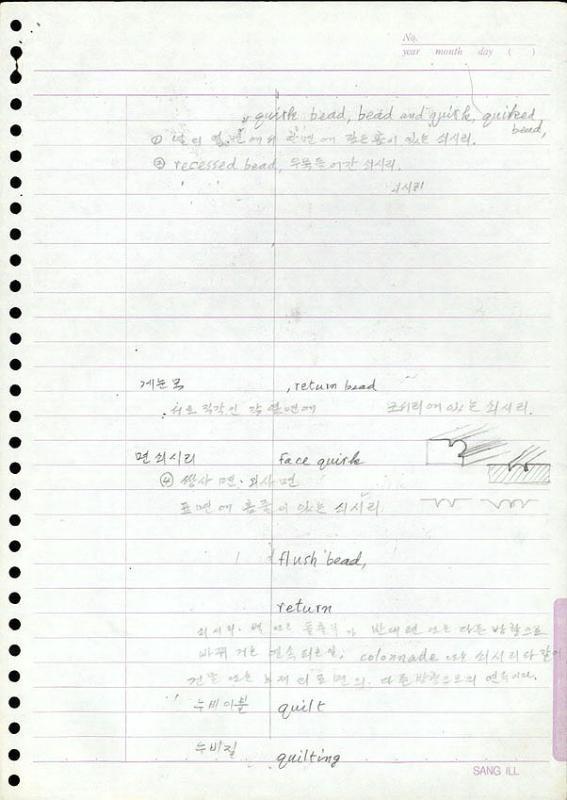 No.
year month day ( )
quirk bead, bead and quirk, quirked
bead,
① 옆면에서 한면에 같은 홈이 있는 쇠시리.
② recessed bead, 우묵 들어간 쇠시리.
쇠시리
게눈목 , return bead
서로 직각인 두 옆면에 모서리에 있는 쇠시리.
면쇠시리 face quirk
④ 쌍사 면. 외사 면
표면에 홈줄이 있는 쇠시리
flush bead,
return
쇠시리. 벽 또는 돌출부가 반대편 또는 다른 방향으로
바뀌 계속되는 colonnade 또는 쇠시리
건물 또는 표면의 다른방향으로의 연속이다.
누비이불 quilt
누비질 quilting
SANG ILL